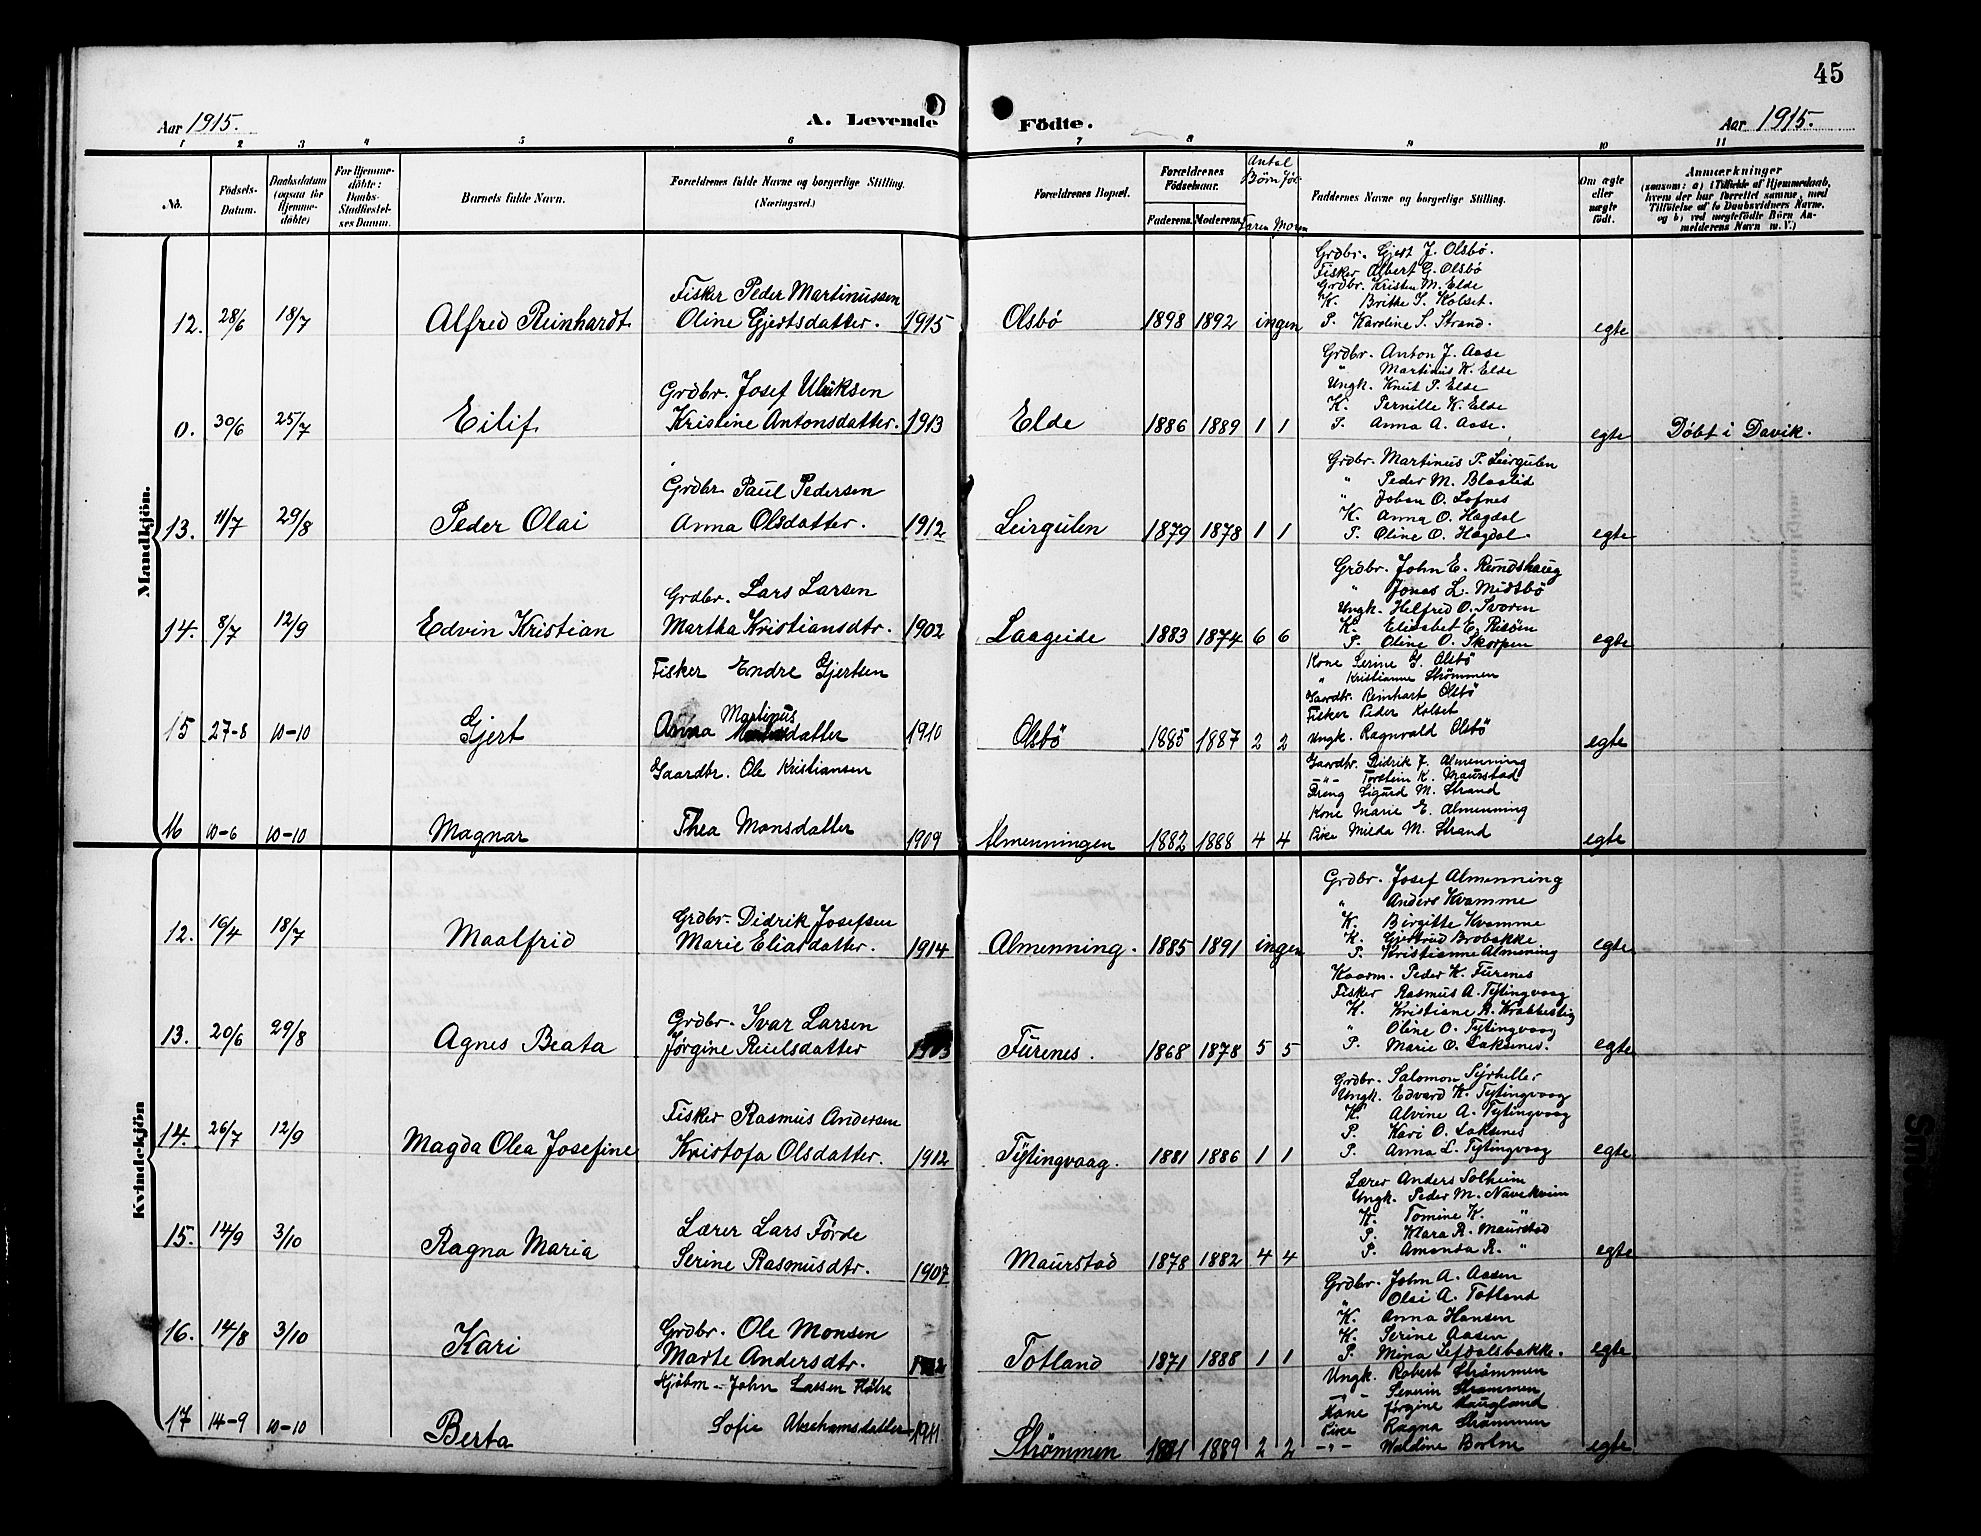 45
Aar 1915.
A. Levende Födte.
Aar 1915.
1 2 3 4 5 6 7 8 9 10 11
No.
Födsels-Datum.
Daabsdatum (ogsaa for Hjemme-döbte)
For Hjemme-döbte: Daabs-Stadfæstel-ses Datum.
Barnets fulde Navn.
Forældrenes fulde Navne og borgerlige Stilling.
(Næringsvei.)
Forældrenes Bopæl.
Forældrenes Fødselsaar.
Faderens. Moderens.
Antal Børn
Faren Moren
Faddernes Navne og borgerlige Stilling.
Om ægte eller uægte födt.
Anmærkninger
(saasom: a) i Tilfælde af Hjemmedaab, hvem der har forrettet samme, med Tilföielse af to Daabsvidners Navne, og b) ved uægtefödte Börn Anmelderens Navn m. V.)
Mandkjön.
Grdbr. Gjert J. Olsbö.
Fisker Albert G. Olsbö
Fisker Peder Martinussen
Grdbr. Kristen M. Elde
K. Brithe S. Kolset.
12. 28/6 18/7 Alfred Reinhardt Oline Gjertsdatter. 1915 Olsbö 1898 1892 ingen P. Karoline S. Strand. egte
Grdbr. Anton J. Aase
" Martinus K. Elde
Grdbr. Josef Ulriksen
Ungk. Knut P. Elde
K. Pernille K. Elde
0. 30/6 25/7 Eilif Kristine Antonsdatter. 1913 Elde 1886 1889 1 1 P. Anna A. Aase. egte Döbt i Davik.
Grdbr. Martinus P. Leirgulen
" Peder M. Blaalid
Grdbr Paul Pedersen
" Johan O. Lofnes
K. Anna O. Hagdal
13. 11/7 29/8 Peder Olai Anna Olsdatter. 1912 Leirgulen 1879 1878 1 1 P. Oline O. Hagdal. egte
Grdbr. John E. Rundshaug
" Jonas L. Midtbö
Grdbr. Lars Larsen
Ungk. Helfred O. Svoren
K. Elisabet E. Risöen
14. 8/7 12/9 Edvin Kristian Martha Kristiansdtr. 1902 Laageide 1883 1874 6 6 P. Oline O. Skorpen egte
Kone Serine G. Olsbö
" Kristianne Strömmen
Fisker Endre Gjertsen
Gaardbr. Reinhart Olsbö
Fisker Peder Kolset
15 27-8 10-10 Gjert Anna Martinusdatter 1910 Olsbö 1885 1887 2 2 Ungk. Ragnvald Olsbö egte
Gaardbr. Didrik J. Almenning
Gaardbr. Ole Kristiansen
-"- Torstein K. Maurstad
Dreng Sigurd M. Strand
Kone Marie E. Almenning
16 10-6 10-10 Magnar Thea Monsdatter 1909 Almenningen 1882 1888 4 4 Pike Milda M. Strand egte
Kvindekjön
Grdbr. Josef Almenning
" Anders Kvamme
Grdbr. Didrik Josefsen
K. Birgitte Kvamme
K. Gjertrud Brobakke
12. 16/4 18/7 Maalfrid Marie Eliasdatter. 1914 Almenning. 1885 1891 ingen P. Kristianne Almening egte
Kaarm. Peder K. Furenes
Fisker Rasmus A. Tytingvaag
Grdbr. Ivar Larsen
K. Kristiane R. Krakkestig
" Oline O. Tytingvaag
13. 20/6 29/8 Agnes Beata Jørgine Reielsdatter 1903 Furenes. 1868 1878 5 5 P. Marie O. Laksenes. egte
Grdbr. Salomon Hyrheller
Ungk. Edvard K. Tytingvaag
Fisker Rasmus Andersen
K. Alvine A. Tytingvaag
P. Kari O. Laksenes
14. 26/7 12/9 Magda Olea Josefine Kristofa Olsdatter. 1912 Tytingvaag. 1881 1886 1 1 P. Anna L. Tytingvaag egte
Lærer Anders Solheim
Ungk. Peder M. Navekvien
Lærer Lars Förde
K. Tomine K. "
P. Klara R. Maurstad
15. 14/9 3/10 Ragna Maria Serine Rasmusdtr. 1907 Maurstad 1878 1882 4 4 P. Amanda R. " egte
Grdbr. John A. Aasen
" Olai A. Totland
Grdbr. Ole Monsen
K. Anna Hansen
K. Serine Aasen
16. 14/8 3/10 Kari Marte Andersdtr. 1912 Totland 1871 1888 1 1 P. Mina Lefdalsbakke. egte
Ungk. Robert Strømmen
Kjöbm - John Lassen Flötre
-"- Severin Strømmen
Kone Jörgine Haugland
Pike Ragna Strömmen
17 14-9 10-10 Berta Sofie Abrahamsdatter 1911 Strömmen 1889 2 2 -"- Waldine Bortne egte